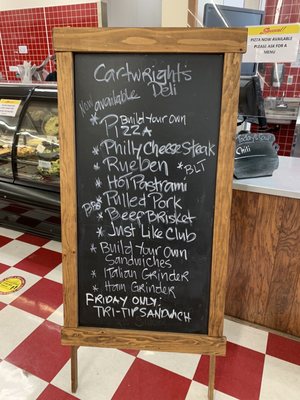 Special!
PIZZA NOW AVAILABLE
PLEASE ASK FOR
A MENU
Cartwrights
Deli
Now available
* Build your own
PIZZA
* Philly Cheese Steak
* Rueben * BLT
* Hot Pastrami
* Pulled Pork
BBQ * Beef Brisket
* Just Like Club
* Build Your Own
Sandwiches
* Italian Grinder
* Ham Grinder
FRIDAY ONLY:
TRI-TIP SANDWICH
Chili